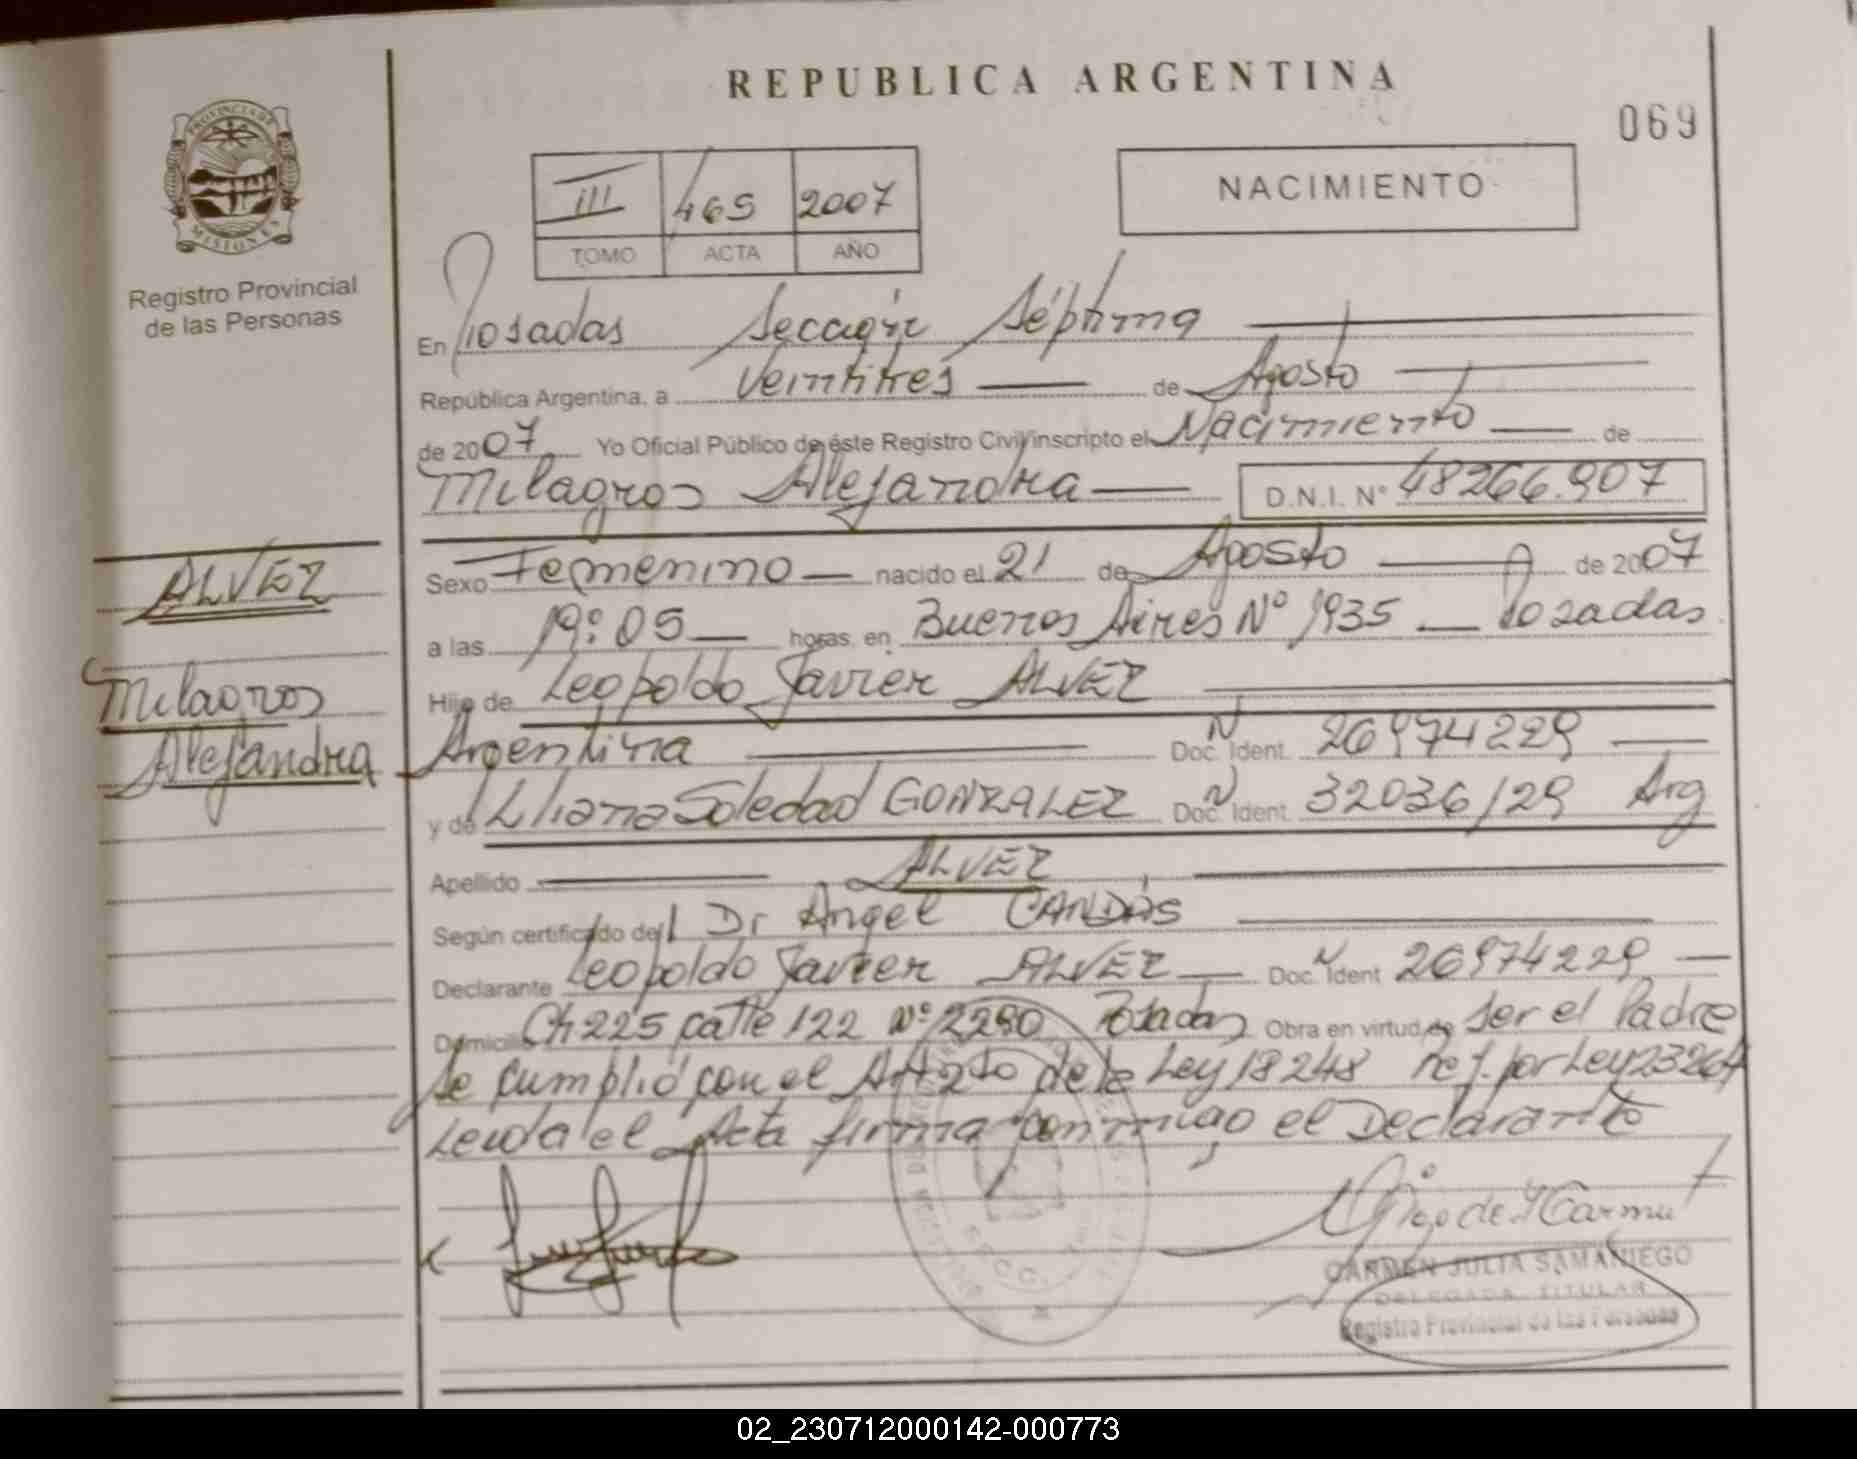 REPUBLICA ARGENTINA
069
PROVINCIA DE MISIONES
Registro Provincial
de las Personas
III 465 2007
TOMO ACTA AÑO
NACIMIENTO
En Posadas Sección Séptima
República Argentina, a Veintitres de Agosto
de 2007 Yo Oficial Público de éste Registro Civil inscripto el Nacimiento de
Milagros Alejandra D.N.I. N° 48266.907
ALVEZ
Milagros
Alejandra
Sexo Femenino nacido el 21 de Agosto de 2007
a las 19:05 horas, en Buenos Aires N° 1935 Posadas
Hijo de Leopoldo Javier ALVEZ
Argentina Doc. Ident. N 26974229
y de Liliana Soledad GONZALEZ Doc. Ident. N 32036129 Arg
Apellido ALVEZ
Según certificado del Dr Angel CANDÍAS
Declarante Leopoldo Javier ALVEZ Doc. Ident N 26974229
Domicilio Ch 225 calle 122 N° 2290 Posadas Obra en virtud de ser el Padre
Se cumplió con el Art 2do de la Ley 18248 ref. por Ley 23264
Leida el Acta firma conmigo el Declarante
CARMEN JULIA SAMANIEGO
DELEGADA TITULAR
Registro Provincial de las Personas
02_230712000142-000773